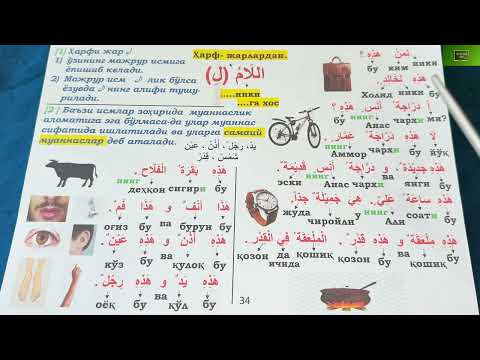 [1] Ҳарфи жар لِ
1) ўзининг мажрур исмига ёпишиб келади.
2) Мажрур исм لِ лик бўлса ёзувда لِ нинг алифи тушурилади.
Ҳарф- жарлардан.
اَللَّامُ (لِ)
.....ники
.....га хос
[2] Баъзи исмлар зоҳирида муаннаслик аломатига эга бўлмаса-да улар муаннас сифатида ишлатилади ва уларга самаий муаннаслар деб аталади.
يَدٌ، رِجْلٌ، أُذُنٌ، عَيْنٌ
شَمْسٌ، قِدْرٌ
هَذِهِ بَقَرَةُ الْفَلَّاحِ.
нинг
деҳқон сигири бу
هَذَا أَنْفٌ وَ هَذَا فَمٌ.
оғиз бу ва бурун бу
هَذِهِ أُذُنٌ وَ هَذِهِ عَيْنٌ.
кўз бу ва қулоқ бу
هَذِهِ يَدٌ وَ هَذِهِ رِجْلٌ.
оёқ бу ва қўл бу
لِمَنْ هَذِهِ؟
бу ким ники
هَذِهِ لِخَالِدٍ.
Холид ники бу
أَ دَرَّاجَةُ أَنَسٍ هَذِهِ؟
нинг
бу Анас чархи ми?
لَا هَذِهِ دَرَّاجَةُ عَمَّارٍ.
нинг
Аммор чархи бу йўқ
هَذِهِ جَدِيدَةٌ وَ دَرَّاجَةُ أَنَسٍ قَدِيمَةٌ.
нинг
эски Анас чархи ва янги бу
هَذِهِ سَاعَةُ عَلِيٍّ. هِيَ جَمِيلَةٌ جِدًّا.
нинг
жуда чиройли у Али соати бу
هَذِهِ مِلْعَقَةٌ وَ هَذِهِ قِدْرٌ. اَلْمِلْعَقَةُ فِي الْقِدْرِ.
қозон да қошиқ қозон бу ва қошиқ бу
ичида
34